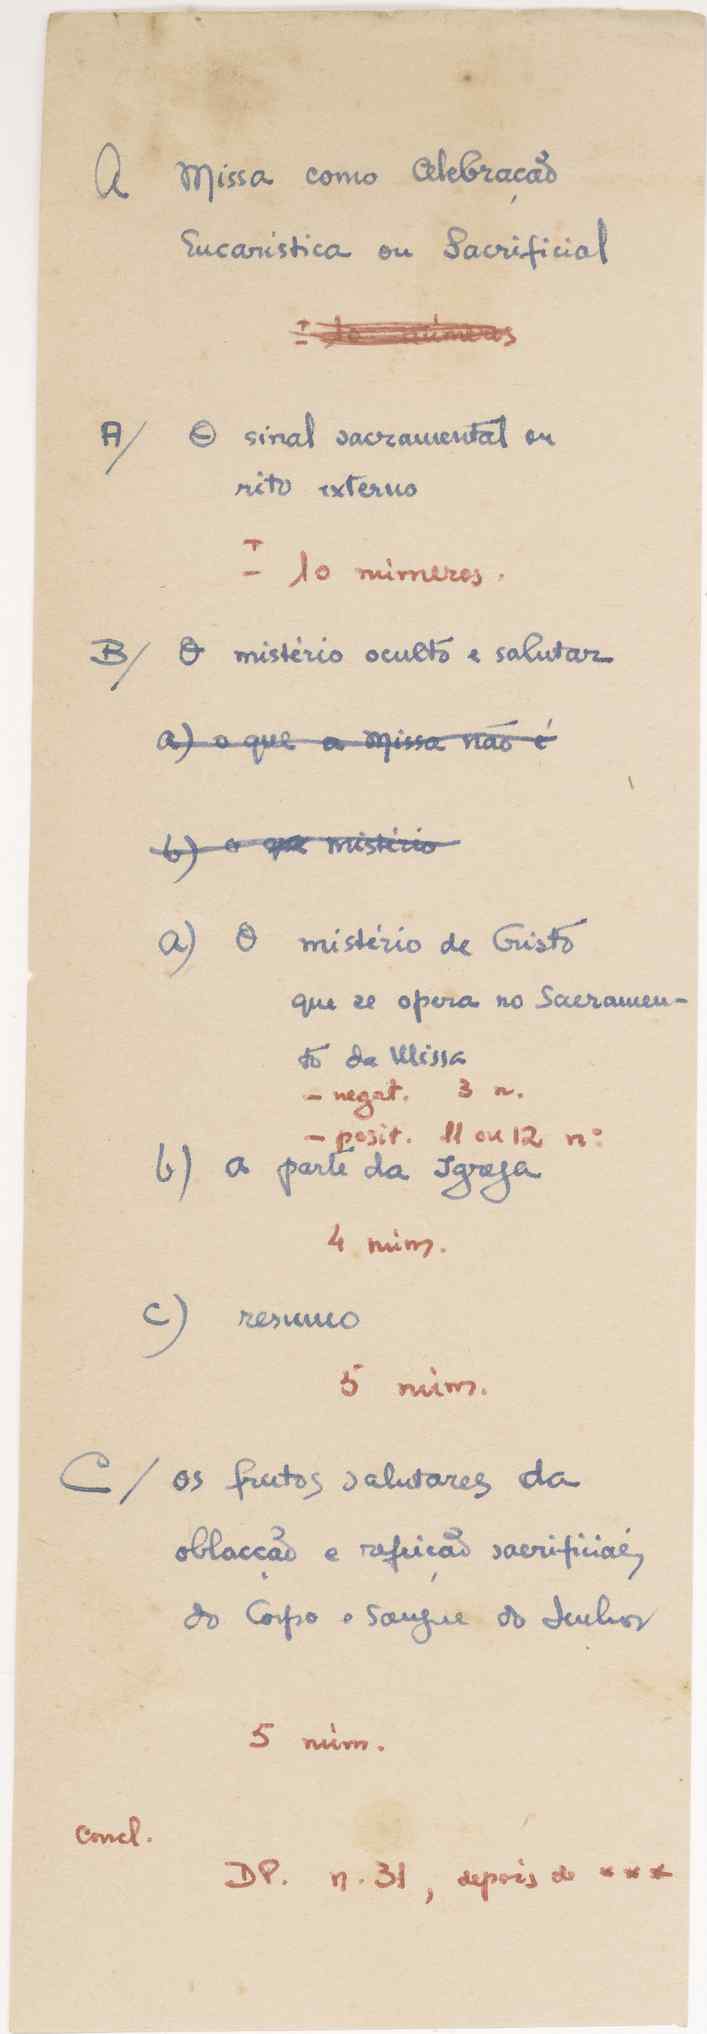 A Missa como Celebração
Eucarística ou Sacrificial
± 10 números
A/ O sinal sacramental ou
rito externo
± 10 números.
B/ O mistério oculto e salutar
a) o que a Missa não é
b) o que mistério
a) O mistério de Cristo
que se opera no Sacramen-
to da Missa
- negat. 3 n.
- posit. 11 ou 12 nº
b) a parte da Igreja
4 núm.
c) resumo
5 núm.
C/ os frutos salutares da
oblacção e refeição sacrificiais,
do Corpo e Sangue do Senhor
5 núm.
Concl.
DP. n. 31, depois de ***